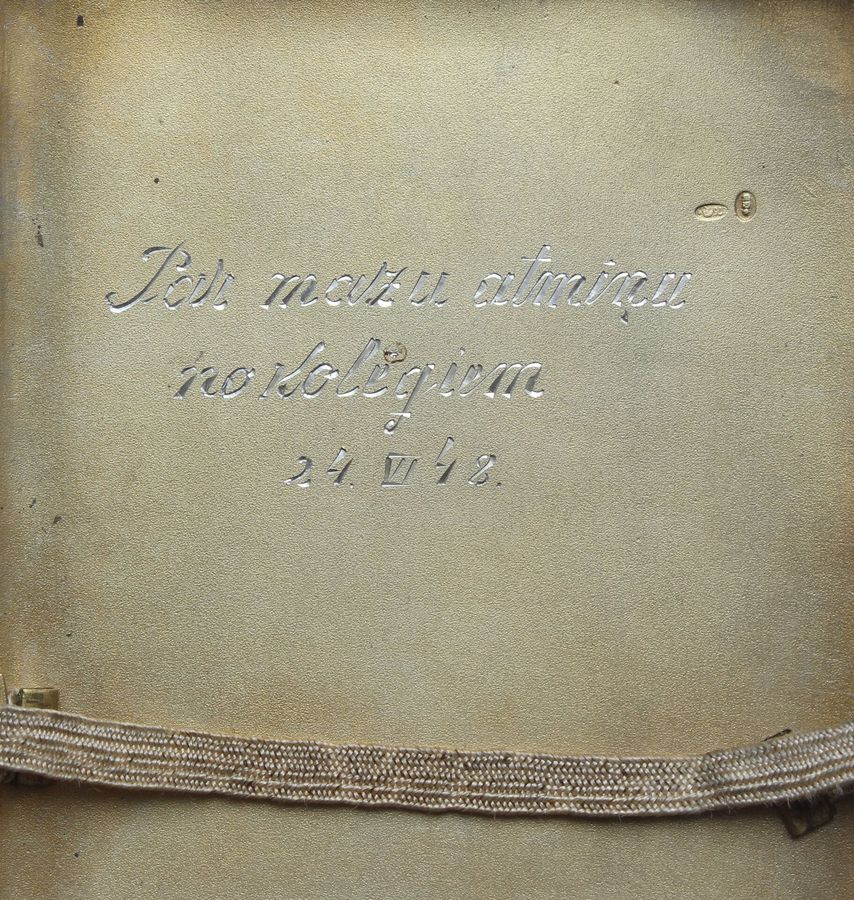 Par mazu atmiņu
no kolēgiem
24. VI 48.